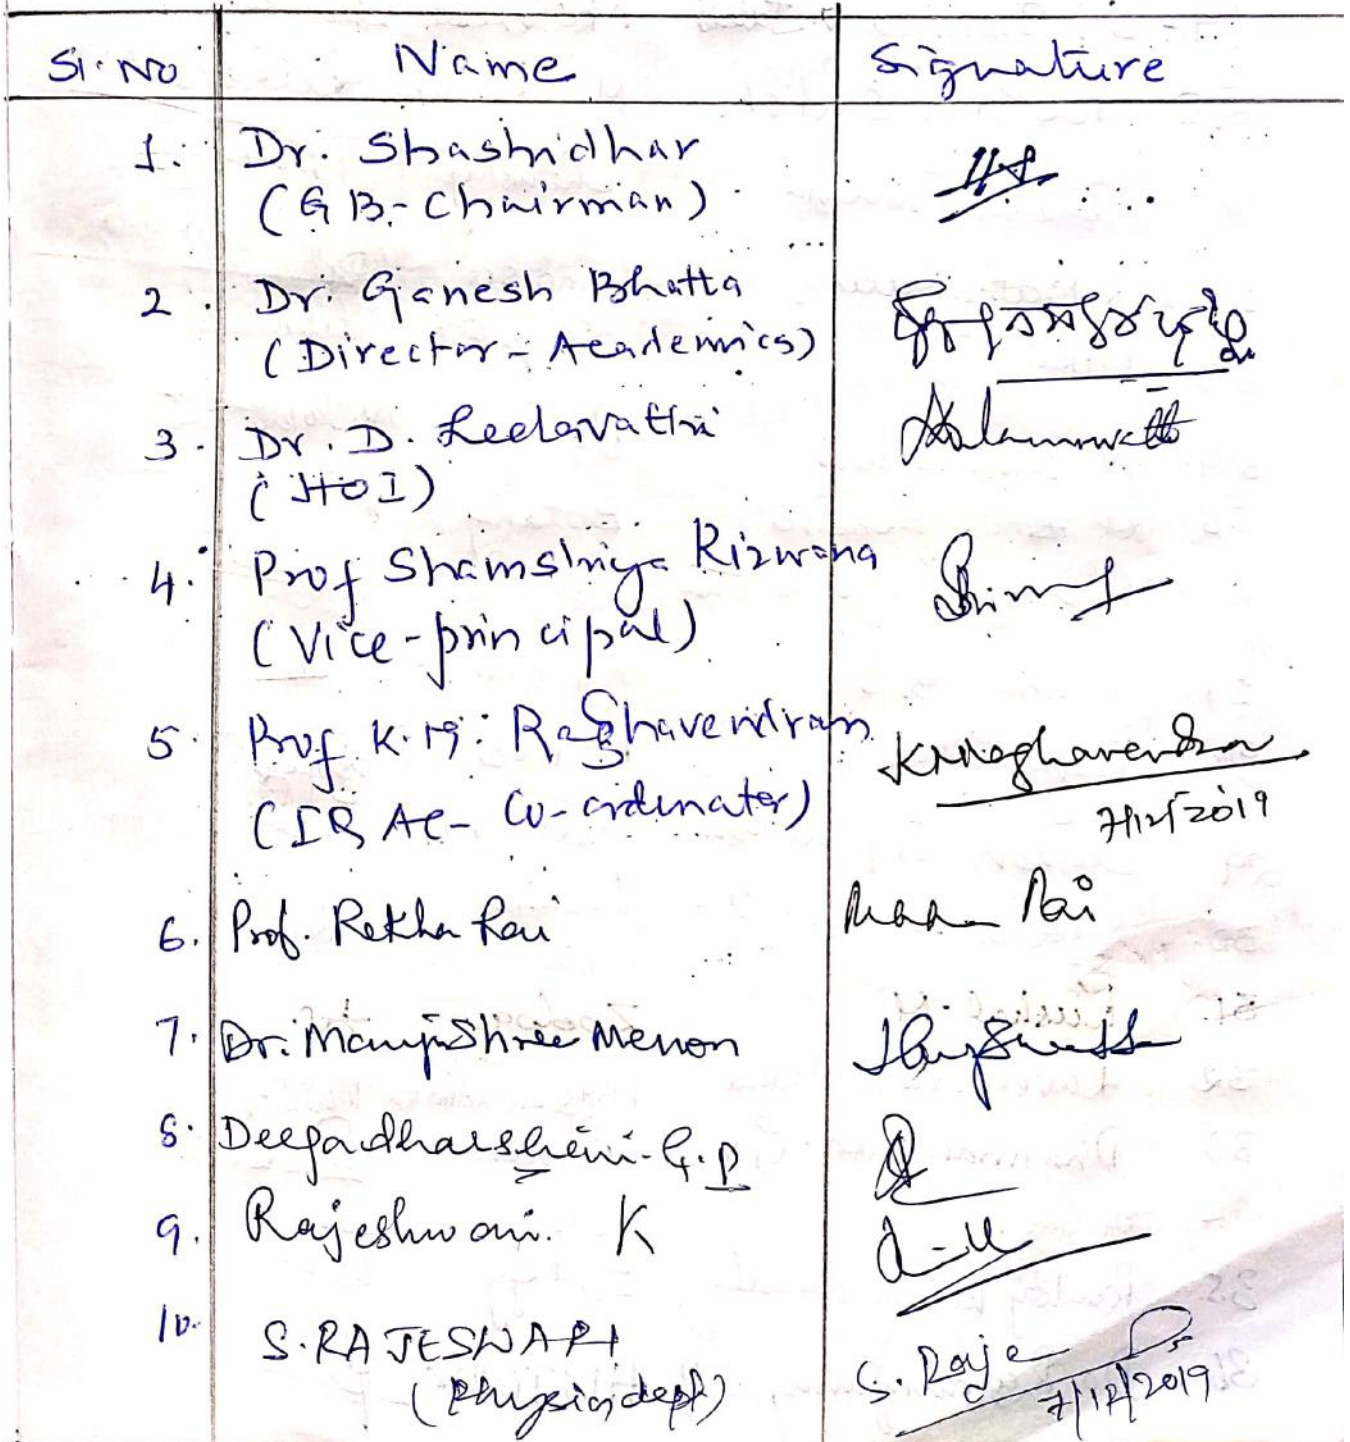 Sl. No Name Signature
1. Dr. Shashidhar
(GB-Chairman)
2. Dr. Ganesh Bhatta
(Director-Academics)
3. Dr. D. Leelavathi
(HOI)
4. Prof Rizwana
(Vice-principal)
5. Prof K. Raghavendran
Co-ordinater)
7/12/2019
6. Prof. Rekha Rai Rai
7. Dr. ManjuShree Menon
8. Deepadharsheni. G.P
9. Rajeshwari. K
10. S. RAJESWARI S. Raje
(Physics dept) 7/12/2019